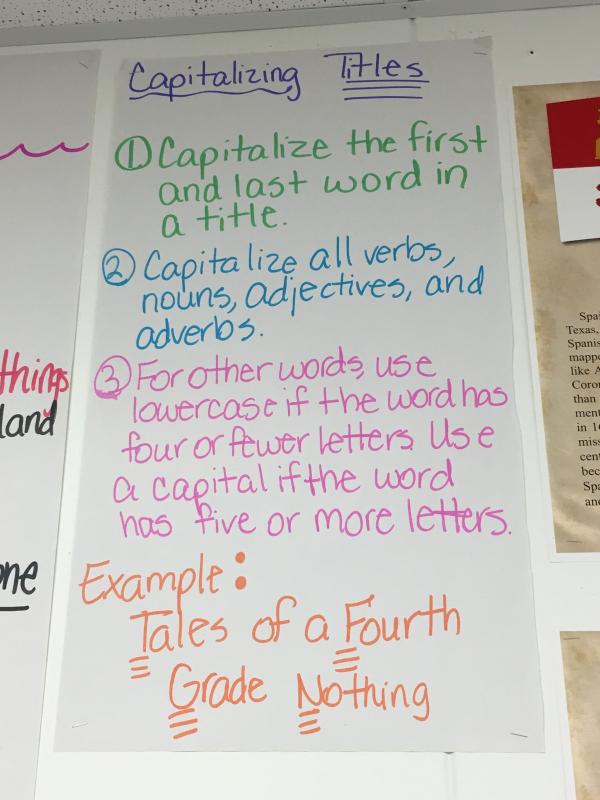 Capitalizing Titles
① Capitalize the first
and last word in
a title.
② Capitalize all verbs,
nouns, adjectives, and
adverbs.
③ For other words, use
lowercase if the word has
four or fewer letters. Use
a capital if the word
has five or more letters.
Example:
Tales of a Fourth
Grade Nothing
things
land
one
Texas,
Spanis
mapp
like A
Coron
than
ment
in 1
miss
cent
bec
Spa
and